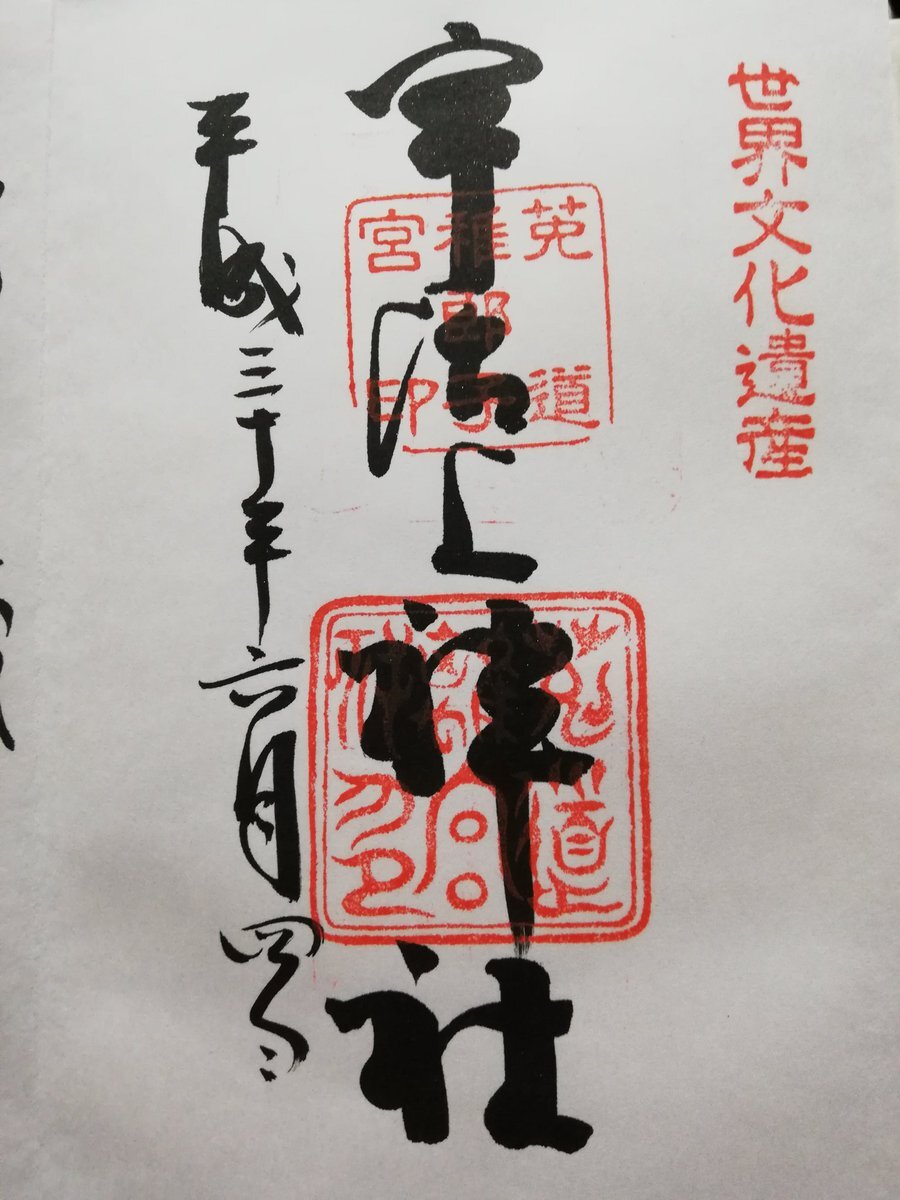 世界文化遺産
宇治上神社
莵道
稚郎子
宮印
平成三十年六月四日